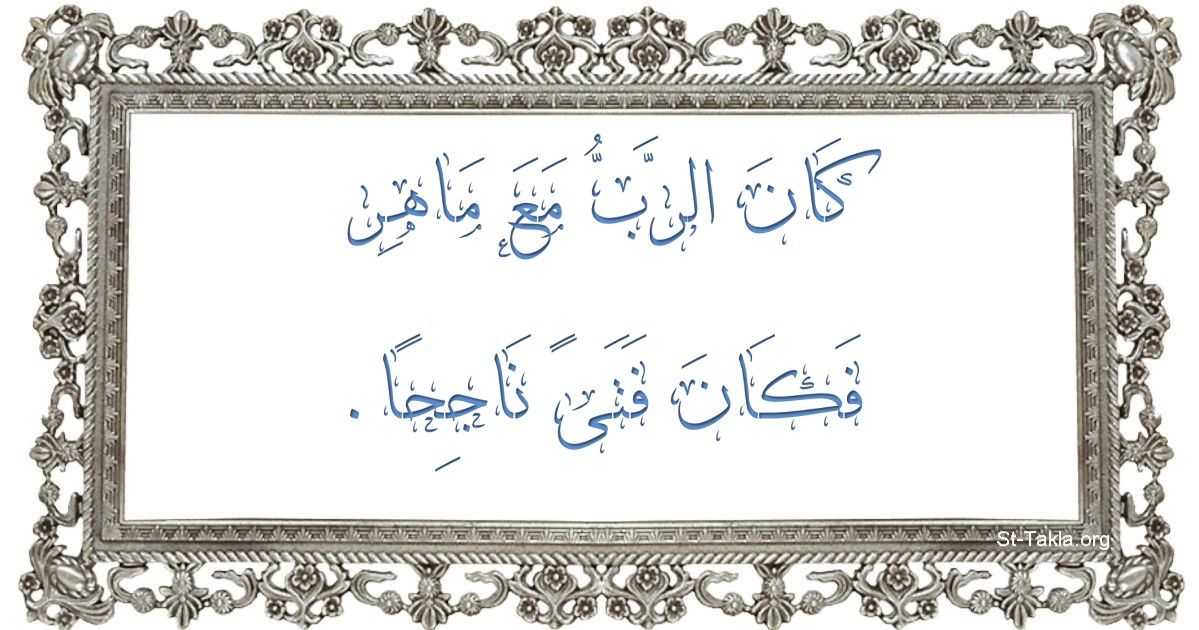 كَانَ الرَّبُّ مَعَ مَاهِرِ
فَكَانَ فَتَىً نَاجِحًا .
St-Takla.org